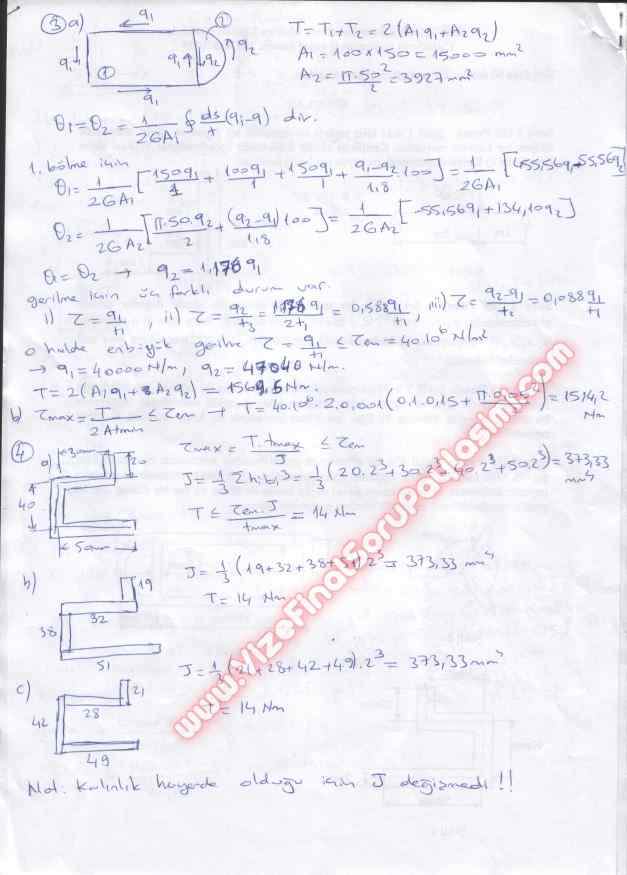 ③ a) q₁ ② q₁ q₁ q₂ q₂ ① q₁
T = T₁ + T₂ = 2 (A₁q₁ + A₂q₂)
A₁ = 100 x 150 = 15000 mm²
A₂ = π.50²/2 = 3927 mm²
θ₁ = θ₂ = 1/2GAᵢ ∮ ds/t (qᵢ - q) dir.
1. bölme için
θ₁ = 1/2GA₁ [150q₁/1 + 100q₁/1 + 150q₁/1 + (q₁-q₂)/1,8 100] = 1/2GA₁ [455,56q₁ - 55,56q₂]
θ₂ = 1/2GA₂ [π.50.q₂/2 + (q₂-q₁)/1,8 100] = 1/2GA₂ [-55,56q₁ + 134,10q₂]
θ₁ = θ₂ → q₂ = 1,176q₁
gerilme için üç farklı durum var.
i) τ = q₁/t₁, ii) τ = q₂/t₃ = 1,176q₁/2t₁ = 0,588q₁/t₁, iii) τ = (q₂-q₁)/t₂ = 0,088q₁/t₁
o halde enbüyük gerilme τ = q₁/t₁ ≤ τem = 40.10⁶ N/m²
→ q₁ = 40000 N/m, q₂ = 47040 N/m.
T = 2(A₁q₁ + A₂q₂) = 1569,5 Nm.
b) τmax = T/2Atmin ≤ τem → T = 40.10⁶. 2.0,001 (0,1.0,15 + π.0,05²/2) = 1514,2 Nm
④ a) 30mm 20 40 50mm
τmax = T.tmax/J ≤ τem
J = 1/3 Σhᵢbᵢ³ = 1/3 (20.2³ + 30.2³ + 40.2³ + 50.2³) = 373,33 mm⁴
T ≤ τem.J/tmax = 14 Nm
b) 19 32 38 51
J = 1/3 (19+32+38+51).2³ = 373,33 mm⁴
T = 14 Nm
c) 21 28 42 49
J = 1/3 (21+28+42+49).2³ = 373,33 mm⁴
T = 14 Nm
Not. Kalınlık heryerde olduğu için J değişmedi !!
www.VizeFinalSoruPaylasimi.com